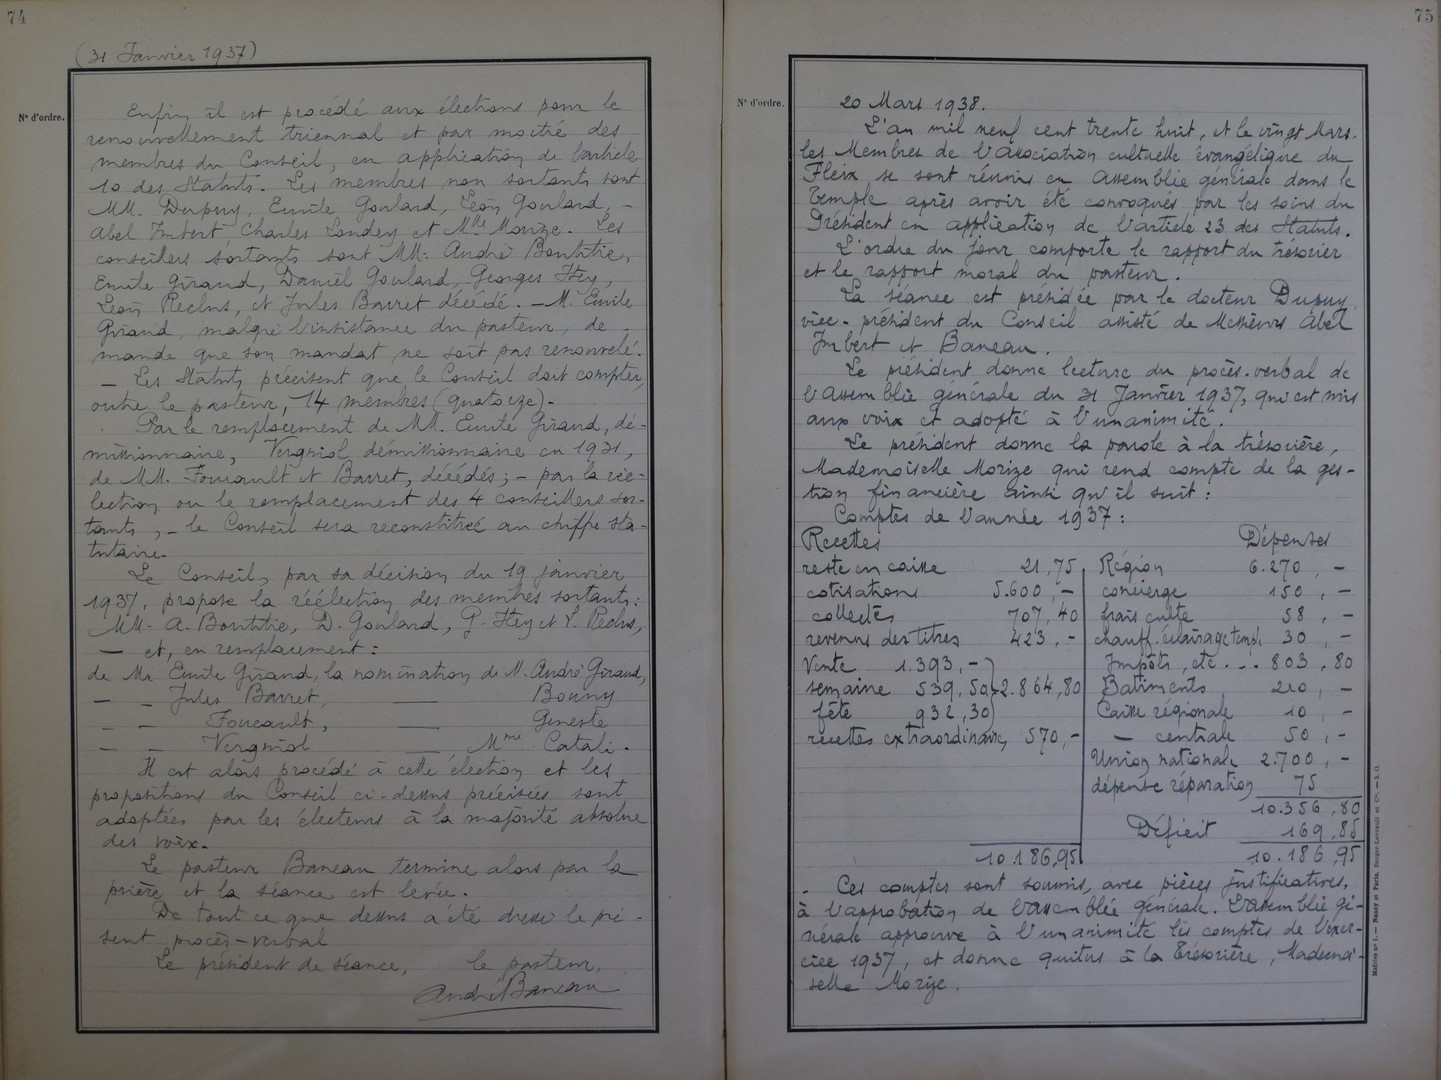 74
(31 Janvier 1937)
N° d'ordre.
Enfin, il est procédé aux élections pour le
renouvellement triennal et par moitié des
membres du Conseil, en application de l'article
10 des Statuts. Les membres non sortants sont
MM. Dupuy, Emile Goulard, Léon Goulard, -
Abel Imbert, Charles Landey et Mlle Morize. Les
conseillers sortants sont MM. André Boutitie,
Emile Giraud, Daniel Goulard, Georges Hey,
Léon Reclus, et Jules Barret décédé. - M. Emile
Giraud, malgré l'insistance du pasteur, de-
mande que son mandat ne soit pas renouvelé.
- Les Statuts précisent que le Conseil doit compter,
outre le pasteur, 14 membres (quatorze).
Par le remplacement de MM. Emile Giraud, dé-
missionnaire, Vergniol démissionnaire en 1931,
de MM. Foucault et Barret, décédés ; - par la réé-
lection ou le remplacement des 4 conseillers sor-
tants, - le Conseil sera reconstitué au chiffre sta-
tutaire.
Le Conseil, par sa décision du 19 janvier
1937, propose la réélection des membres sortants :
MM. A. Boutitie, D. Goulard, G. Hey et L. Reclus,
- et, en remplacement :
de Mr Emile Giraud, la nomination de M. André Giraud,
- - Jules Barret, — Bouny
- - Foucault, — Geneste
- - Vergniol — Mme Catali.
Il est alors procédé à cette élection et les
propositions du Conseil ci-dessus précisées sont
adoptées par les électeurs à la majorité absolue
des voix.
Le pasteur Baneau termine alors par la
prière et la séance est levée.
De tout ce que dessus a été dressé le pré-
sent procès-verbal
Le président de séance, le pasteur,
André Baneau
75
N° d'ordre.
20 Mars 1938.
L'an mil neuf cent trente huit, et le vingt Mars.
les Membres de l'Association cultuelle évangélique du
Fleix se sont réunis en Assemblée générale dans le
Temple après avoir été convoqués par les soins du
Président en application de l'article 23 des Statuts.
L'ordre du jour comporte le rapport du trésorier
et le rapport moral du pasteur.
La séance est présidée par le docteur Dupuy,
vice-président du Conseil assisté de Messieurs Abel
Imbert et Baneau.
Le président donne lecture du procès-verbal de
l'Assemblée générale du 31 Janvier 1937, qui est mis
aux voix et adopté à l'unanimité.
Le président donne la parole à la trésorière,
Mademoiselle Morize qui rend compte de la ges-
tion financière ainsi qu'il suit :
Comptes de l'année 1937 :
Recettes Dépenses
reste en caisse 21,75 Région 6.270, -
cotisations 5.600, - concierge 150, -
collectes 707,40 frais culte 58, -
revenus des titres 423, - chauff. éclairage templ. 30, -
Vente 1.393, - Impôts, etc... 803,80
semaine 539,50 2.864,80 Batiments 210, -
fête 932,30 Caisse régionale 10, -
recettes extraordinaires 570, - — centrale 50, -
Union nationale 2.700, -
dépense réparation 75
10.356,80
Déficit 169,85
10.186,95 10.186,95
Ces comptes sont soumis, avec pièces justificatives,
à l'approbation de l'assemblée générale. L'assemblée gé-
nérale approuve à l'unanimité les comptes de l'exer-
cice 1937, et donne quitus à la Trésorière, Mademoi-
selle Morize.
Modèle n° 1. — Nancy et Paris, Berger-Levrault et Cie. — S. O.